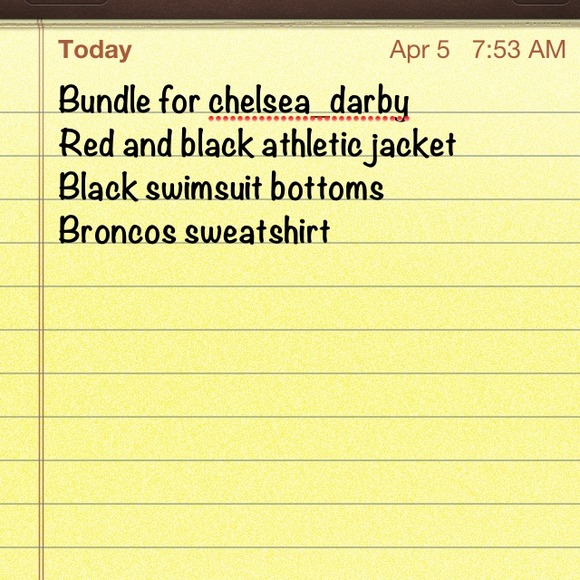 Today Apr 5 7:53 AM
Bundle for chelsea_darby
Red and black athletic jacket
Black swimsuit bottoms
Broncos sweatshirt